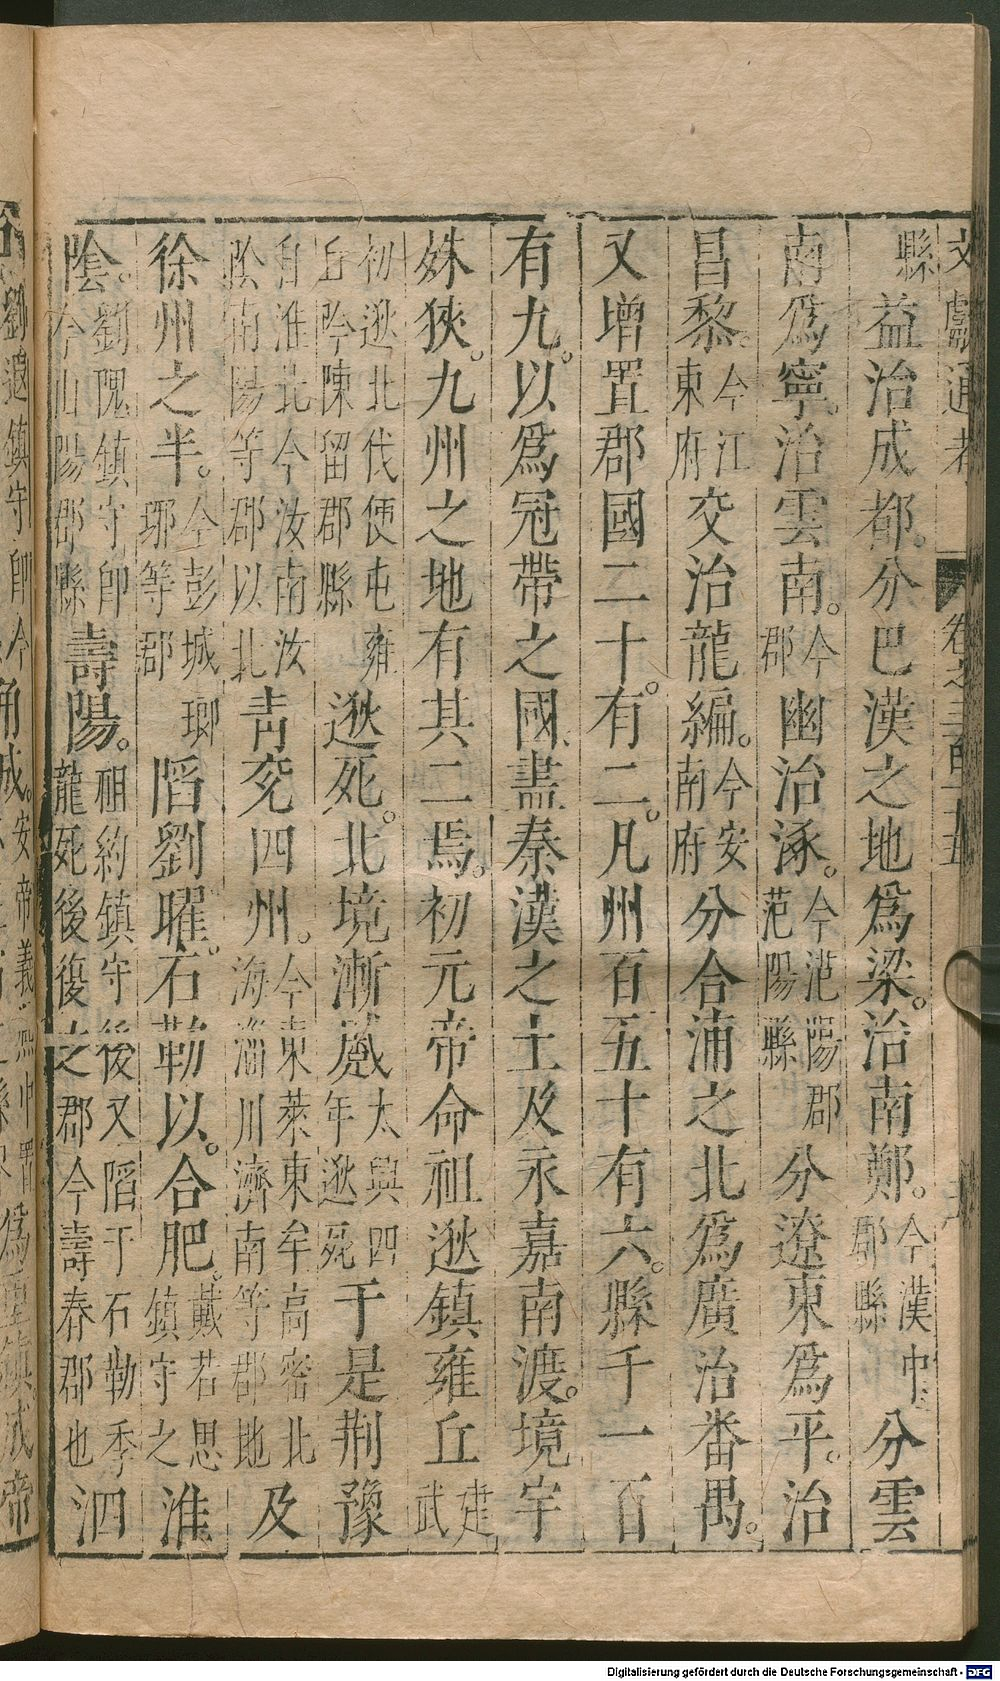 文獻通考 卷之三百十五
縣益治成都。分巴漢之地爲梁。治南鄭。今漢中郡縣分雲
南爲寧。治雲南。今郡幽治涿。今范陽郡范陽縣分遼東爲平。治
昌黎。今江東府交治龍編。今安南府分合浦之北爲廣治番禺。
又增置郡國二十。有二。凡州百五十有六。縣千一百
有九。以爲冠帶之國、盡秦漢之土及永嘉南渡。境宇
殊狹。九州之地有其二焉。初元帝命祖逖鎮雍丘建武
初逖北伐便屯雍丘今陳留郡縣逖死。北境漸蹙太興四年逖死于是荆豫
自淮北今汝南汝陰南陽等郡以北青兖四州。今東萊東牟高密北海淄川濟南等郡地及
徐州之半。今彭城瑯琊等郡陷劉曜。石勒以。合肥。戴若思鎮守之淮
陰。劉隗鎮守卽今山陽郡縣壽陽。祖約鎮守後又陷于石勒季龍死後復之郡今壽春郡也泗
劉遐鎮守卽今
角城。安帝義熙中置